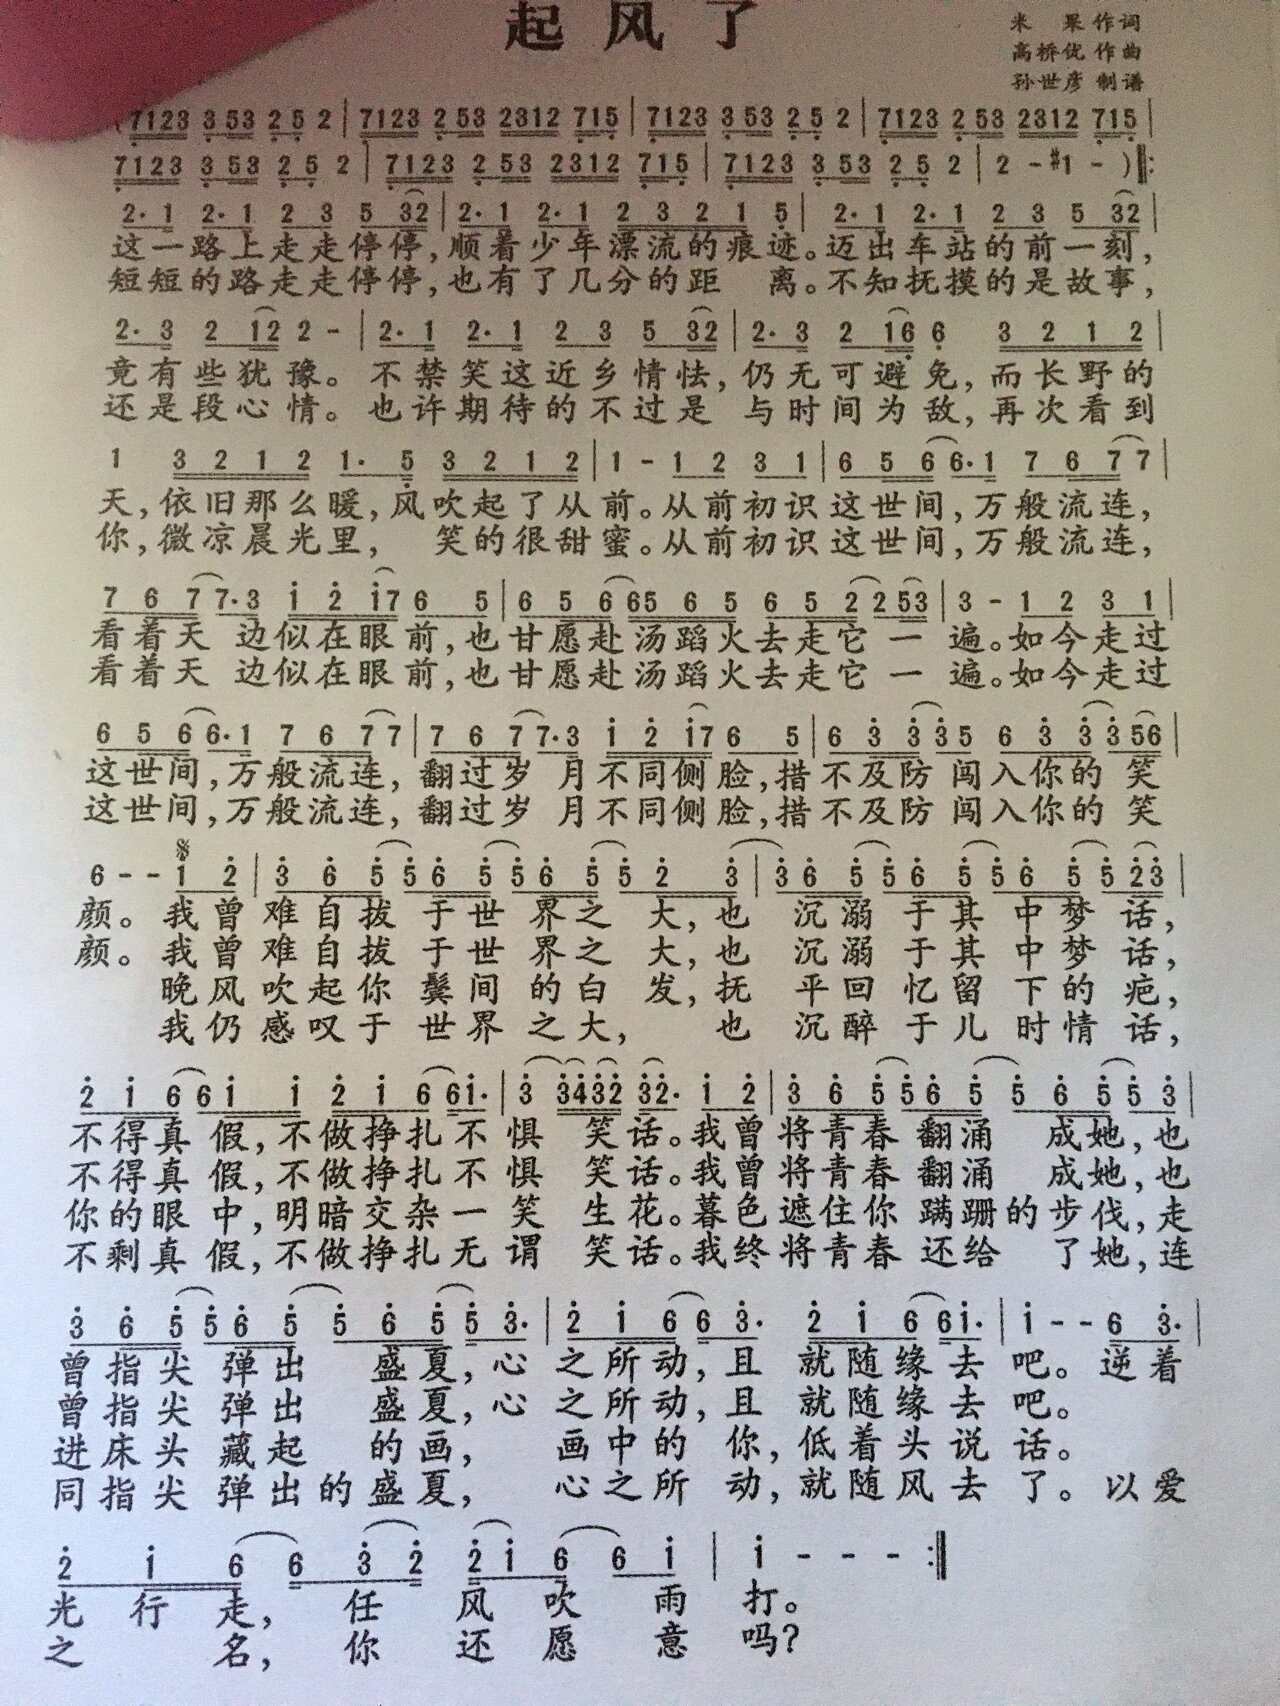 起风了
米 果 作词
高桥优 作曲
孙世彦 制谱
(7123 3 53 2 5 2 | 7123 2 53 2312 715 | 7123 3 53 2 5 2 | 7123 2 53 2312 715 |
7123 3 53 2 5 2 | 7123 2 53 2312 715 | 7123 3 53 2 5 2 | 2 - #1 - ) ‖:
2· 1 2· 1 2 3 5 32 | 2· 1 2· 1 2 3 2 1 5 | 2· 1 2· 1 2 3 5 32 |
这一路上走走停停，顺着少年漂流的痕迹。迈出车站的前一刻，
短短的路走走停停，也有了几分的距 离。不知抚摸的是故事，
2· 3 2 12 2 - | 2· 1 2· 1 2 3 5 32 | 2· 3 2 16 6 3 2 1 2 |
竟有些犹豫。不禁笑这近乡情怯，仍无可避免，而长野的
还是段心情。也许期待的不过是 与时间为敌，再次看到
1 3 2 1 2 1· 5 3 2 1 2 | 1 - 1 2 3 1 | 6 5 6 6· 1 7 6 7 7 |
天，依旧那么暖，风吹起了从前。从前初识这世间，万般流连，
你，微凉晨光里， 笑的很甜蜜。从前初识这世间，万般流连，
7 6 7 7· 3 1̇ 2̇ 1̇7 6 5 | 6 5 6 65 6 5 6 5 2 2 53 | 3 - 1 2 3 1 |
看着天 边似在眼前，也甘愿赴汤蹈火去走它一遍。如今走过
看着天 边似在眼前，也甘愿赴汤蹈火去走它一遍。如今走过
6 5 6 6· 1 7 6 7 7 | 7 6 7 7· 3 1̇ 2̇ 1̇7 6 5 | 6 3̇ 3̇ 3̇ 5 6 3̇ 3̇ 3̇ 56 |
这世间，万般流连，翻过岁 月不同侧脸，措不及防 闯入你的 笑
这世间，万般流连，翻过岁 月不同侧脸，措不及防 闯入你的 笑
6 - - 1̇ 2̇ | 3̇ 6̇ 5̇ 5̇ 6̇ 5̇ 5̇ 6̇ 5̇ 5̇ 2̇ 3̇ | 3̇ 6̇ 5̇ 5̇ 6̇ 5̇ 5̇ 6̇ 5̇ 5̇ 2̇3̇ |
颜。我曾难自拔 于世 界之 大，也 沉溺 于其 中梦 话，
颜。我曾难自拔 于世 界之 大，也 沉溺 于其 中梦 话，
晚风吹起你 鬓间 的白 发，抚 平回 忆留 下的 疤，
我仍感叹于 世界 之大， 也 沉醉 于儿 时情 话，
2̇ 1̇ 6 6 1̇ 1̇ 2̇ 1̇ 6 6 1̇· | 3̇ 3̇4̇3̇2̇ 3̇2̇· 1̇ 2̇ | 3̇ 6̇ 5̇ 5̇ 6̇ 5̇ 5̇ 6̇ 5̇ 5̇ 3̇ |
不得真 假，不做挣扎不 惧 笑话。我曾将青春翻涌 成她，也
不得真 假，不做挣扎不 惧 笑话。我曾将青春翻涌 成她，也
你的眼 中，明暗交杂一 笑 生花。暮色遮住你 蹒跚的步伐，走
不剩真 假，不做挣扎无 谓 笑话。我终将青春还给 了她，连
3̇ 6̇ 5̇ 5̇ 6̇ 5̇ 5̇ 6̇ 5̇ 5̇ 3̇· | 2̇ 1̇ 6 6 3̇· 2̇ 1̇ 6 6 1̇· | 1̇ - - 6 3̇· |
曾指尖 弹出 盛夏，心 之所动，且 就随缘去 吧。逆着
曾指尖 弹出 盛夏，心 之所动，且 就随缘去 吧。
进床头 藏起 的画， 画中的 你，低着头说 话。
同指尖 弹出的盛夏， 心之所 动，就随风去 了。以爱
2̇ 1̇ 6 6 3̇ 2̇ 2̇ 1̇ 6 6 1̇ | 1̇ - - - :‖
光 行 走， 任 风 吹 雨 打。
之 名，你 还 愿 意 吗？